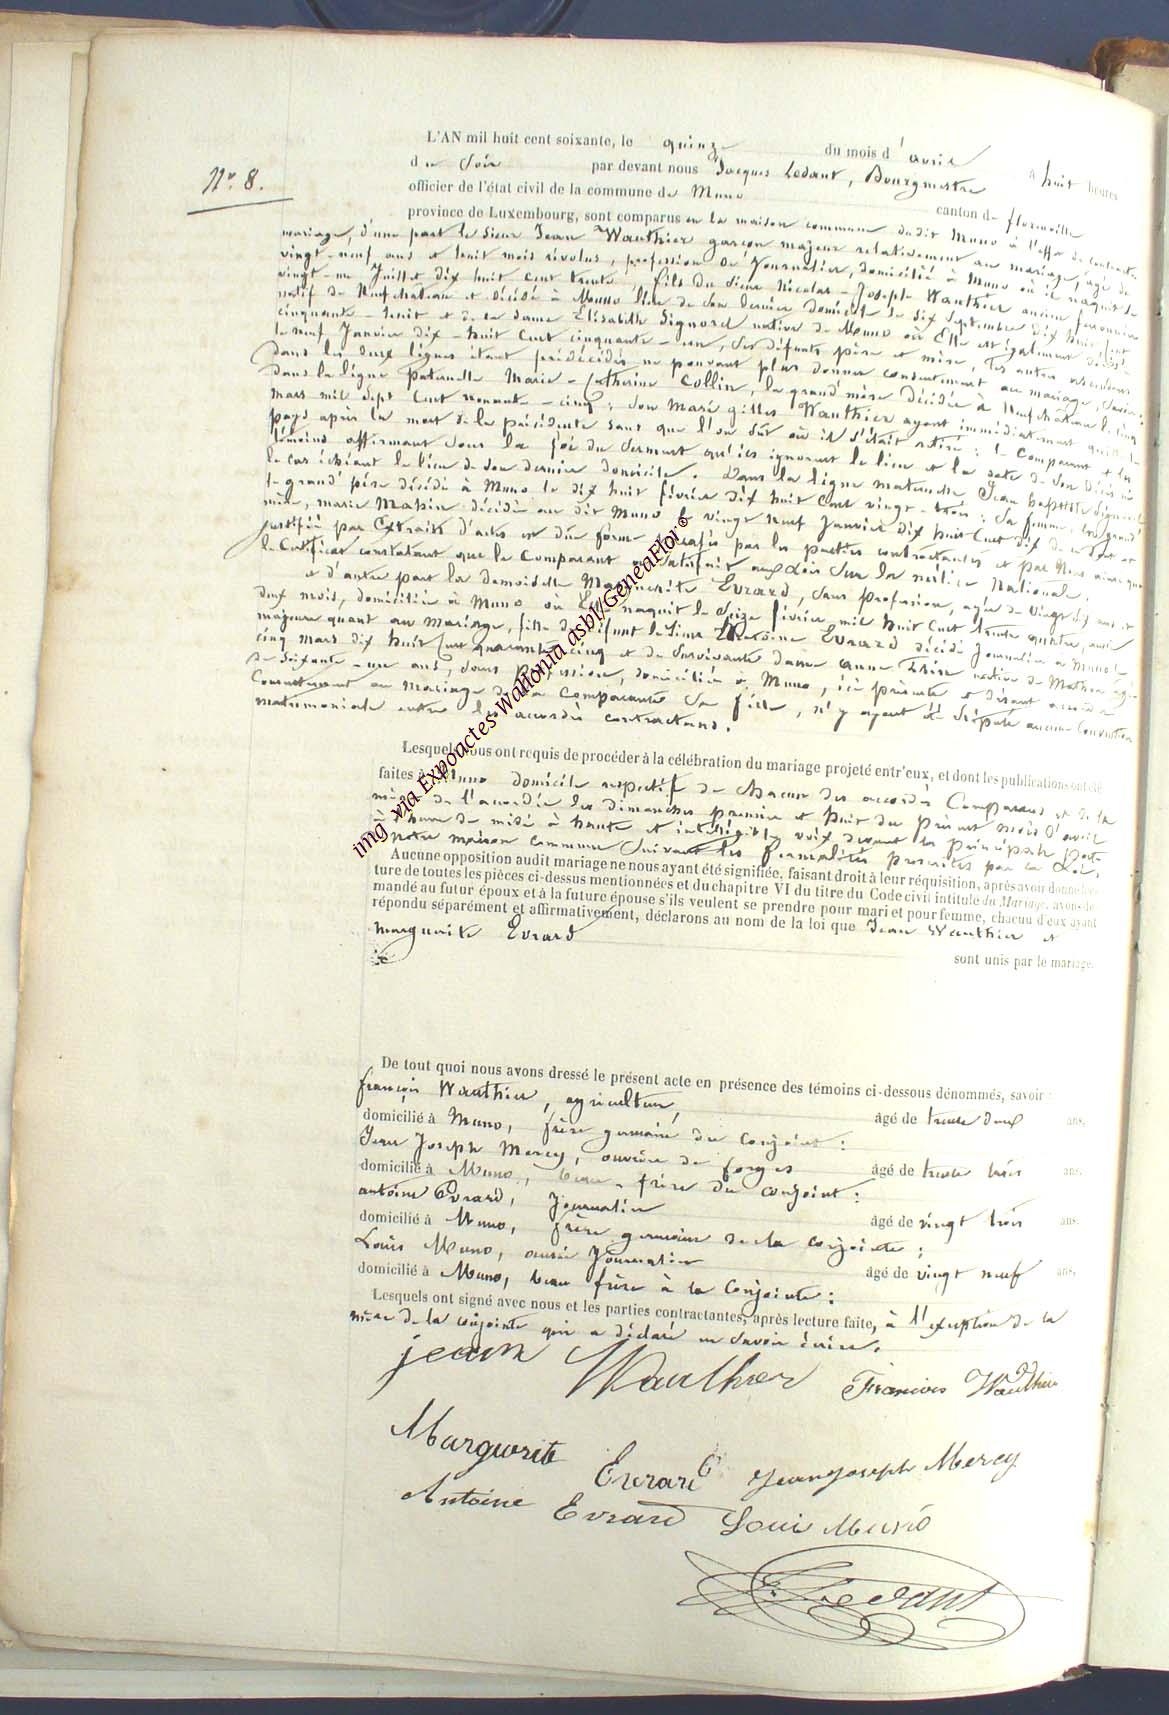 N.º 8.
L'AN mil huit cent soixante, le quinze du mois d'avril à huit heures
du Soir par devant nous Jacques Ledant, Bourgmestre
officier de l'état civil de la commune de Muno canton de florenville
province de Luxembourg, sont comparus en la maison commune dudit Muno à l'effet de contracter
mariage, d'une part le Sieur Jean Wauthier garçon majeur relativement au mariage, âgé de
vingt-neuf ans et huit mois révolus, profession de Journalier, domicilié à Muno où il naquit le
vingt-un Juillet dix huit cent trente, fils du Sieur Nicolas-Joseph Wauthier ancien
natif de Neufchâteau et décédé à Muno lieu de son dernier domicile le six Septembre dix huit cent
cinquante-huit et de la dame Elisabeth Signord native de Muno où Elle est également décédée
le neuf Janvier dix-huit Cent cinquante-un, ses défunts père et mère, Les autres ascendans
dans les deux lignes étant prédécédés ne pouvant plus donner consentement au mariage, savoir:
dans la ligne paternelle Marie-Catherine Collin, la grand'mère décédée à Neufchâteau le cinq
mars mil Sept Cent nonante-cinq; Son Mari gilles Wauthier ayant immédiatement quitté le
pays après la mort de la précédente sans que l'on sût où il s'était retiré; le Comparant et les
témoins affirmant sous la foi du Serment qu'ils ignorent le lieu et la date de son décès ou
le cas échéant le lieu de son dernier domicile. Dans la ligne maternelle Jean baptiste Signord
le grand'père décédé à Muno le dix huit février dix huit Cent vingt-trois; Sa femme la grand'
mère, marie Mahin décédée au dit Muno le vingt neuf Janvier dix huit Cent dix de ce dont est
justifié par Extraits d'actes en due forme parafés par les parties contractantes et par Nous ainsi que
le Certificat constatant que le Comparant a satisfait aux Lois Sur la milice Nationale.
et d'autre part la demoiselle Marguerite Evrard, sans profession, agée de vingt six ans et
deux mois, domiciliée à Muno où Elle naquit le Seize février mil huit Cent trente quatre, aussi
majeure quant au Mariage, fille de défunt le Sieur Antoine Evrard décédé Journalier à Muno le
cinq mars dix huit Cent quarante cinq et de Survivante dame anne native de Mathon âgée
de Soixante-un ans, sans profession, domiciliée à Muno, ici présente et disant
Consentement au Mariage de la Comparante Sa fille, n'y ayant été stipulé aucune Convention
matrimoniale entre les accordés contractans.
Lesquels nous ont requis de procéder à la célébration du mariage projeté entr'eux, et dont les publications ont été
faites à Muno domicile respectif de chacun des accordés Comparans et de la
mère de l'accordée les dimanches premier et huit du présent mois d'avril
à l'heure de midi à haute et intelligible voix devant la principale Porte
notre maison commune suivant les formalités prescrites par la Loi.
Aucune opposition audit mariage ne nous ayant été signifiée, faisant droit à leur réquisition, après avoir donné lec-
ture de toutes les pièces ci-dessus mentionnées et du chapitre VI du titre du Code civil intitulé du Mariage, avons de-
mandé au futur époux et à la future épouse s'ils veulent se prendre pour mari et pour femme, chacun d'eux ayant
répondu séparément et affirmativement, déclarons au nom de la loi que Jean Wauthier et
Marguerite Evrard
sont unis par le mariage.
De tout quoi nous avons dressé le présent acte en présence des témoins ci-dessous dénommés, savoir:
françois Wauthier, agriculteur, âgé de trente deux ans.
domicilié à Muno, frère germain du Conjoint:
Jean Joseph Mercy, ouvrier de forges âgé de trente trois ans
domicilié à Muno, beau-frère du conjoint:
antoine Evrard, Journalier âgé de vingt trois ans.
domicilié à Muno, frère germain de la conjointe;
Louis Muno, aussi Journalier âgé de vingt neuf ans.
domicilié à Muno, beau frère à la Conjointe:
Lesquels ont signé avec nous et les parties contractantes, après lecture faite, à l'exception de la
mère de la conjointe qui a déclaré ne savoir écrire.
jean Wauthier François Wauthier
Marguerite Evrard Jean joseph Mercy
Antoine Evrard Loui Muno
J. Ledant
img via Expoactes Wallonia asbl/GeneaFlor©